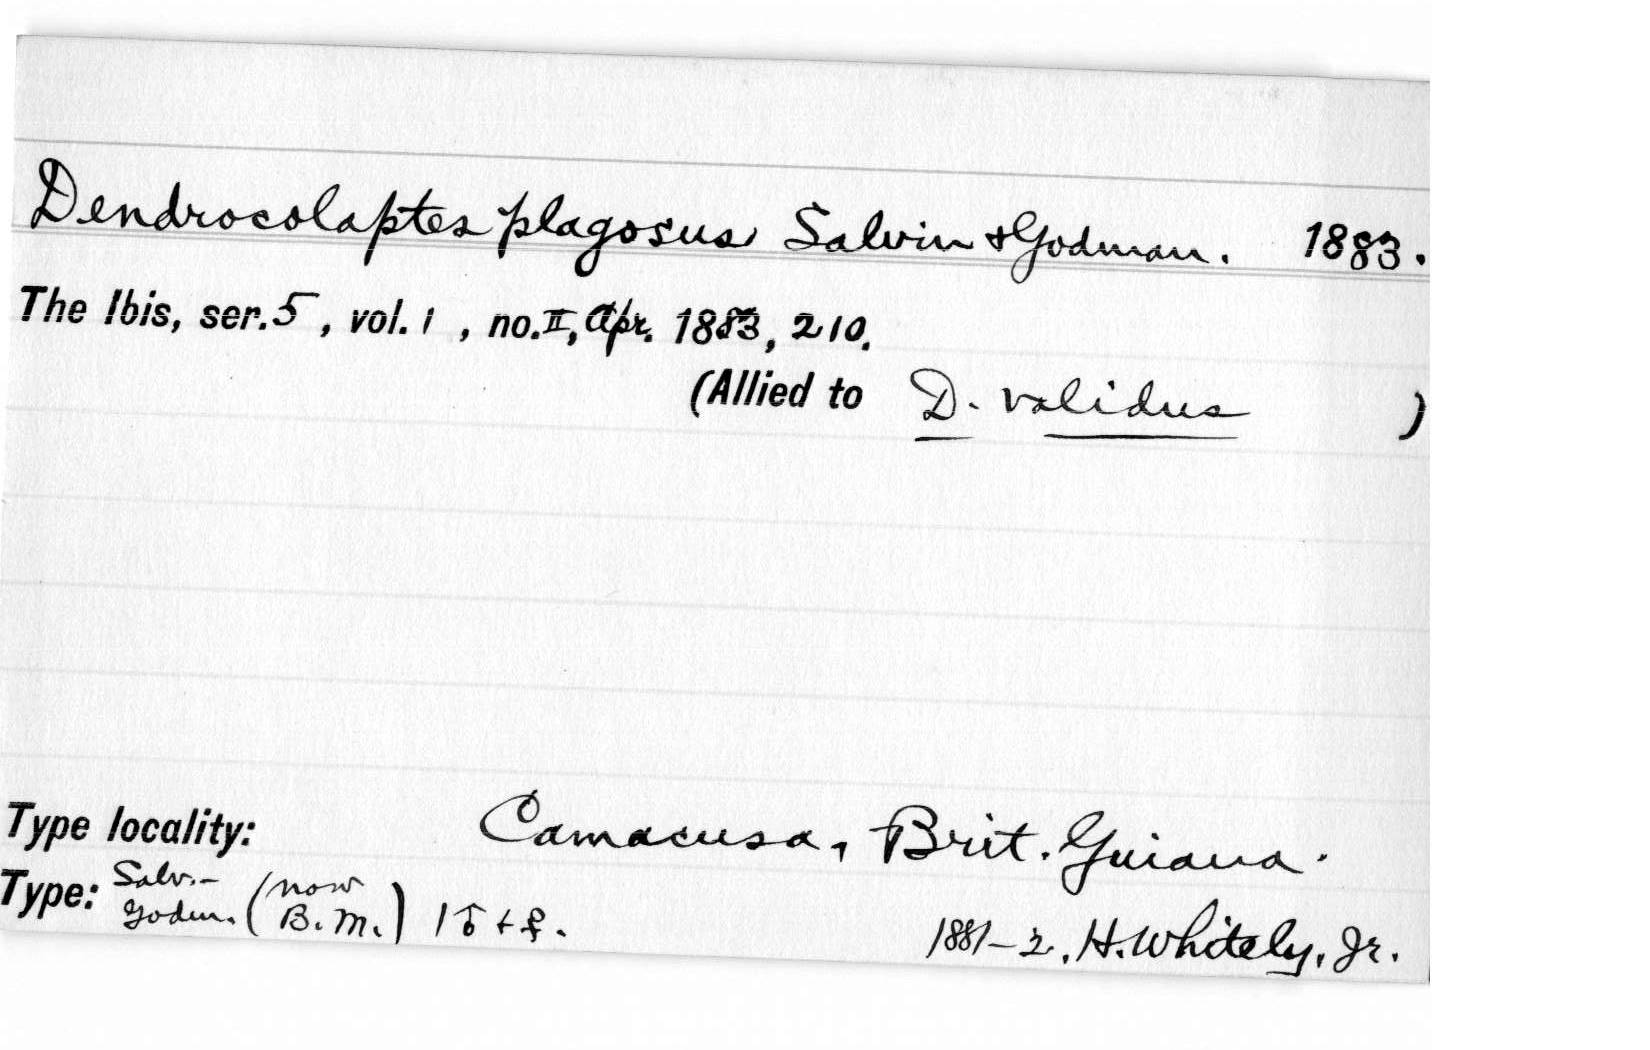 Dendrocolaptes plagosus Salvin & Godman. 1883.
The Ibis, ser. 5, vol. 1, no. II, Apr. 1883, 210.
(Allied to D. validus )
Type locality: Camacusa, Brit. Guiana.
Type: Salv.-Godm. (now B.M.) 1 ♂ + ♀. 1881-2, H. Whitely, Jr.